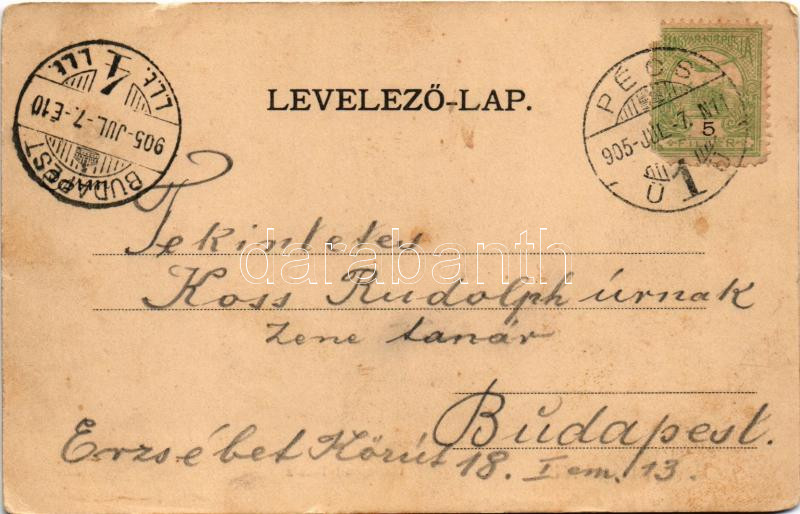 LEVELEZŐ-LAP.
BUDAPEST
905-JUL-7.-E10
1
PÉCS
905-JUL-7. N11
Ü 1
MAGYAR KIR. POSTA
5
FILLÉR
Tekintetes
Koss Rudolph úrnak
zene tanár
Budapest.
Erzsébet Körút 18. I em. 13.
darabanth